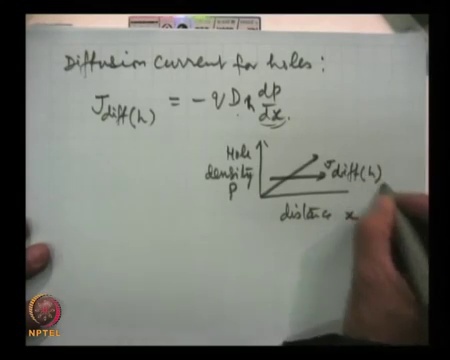 Diffusion current for holes:
J diff(h) = - q D h dp/dx.
Hole
density
p
J diff(h)
distance x
NPTEL